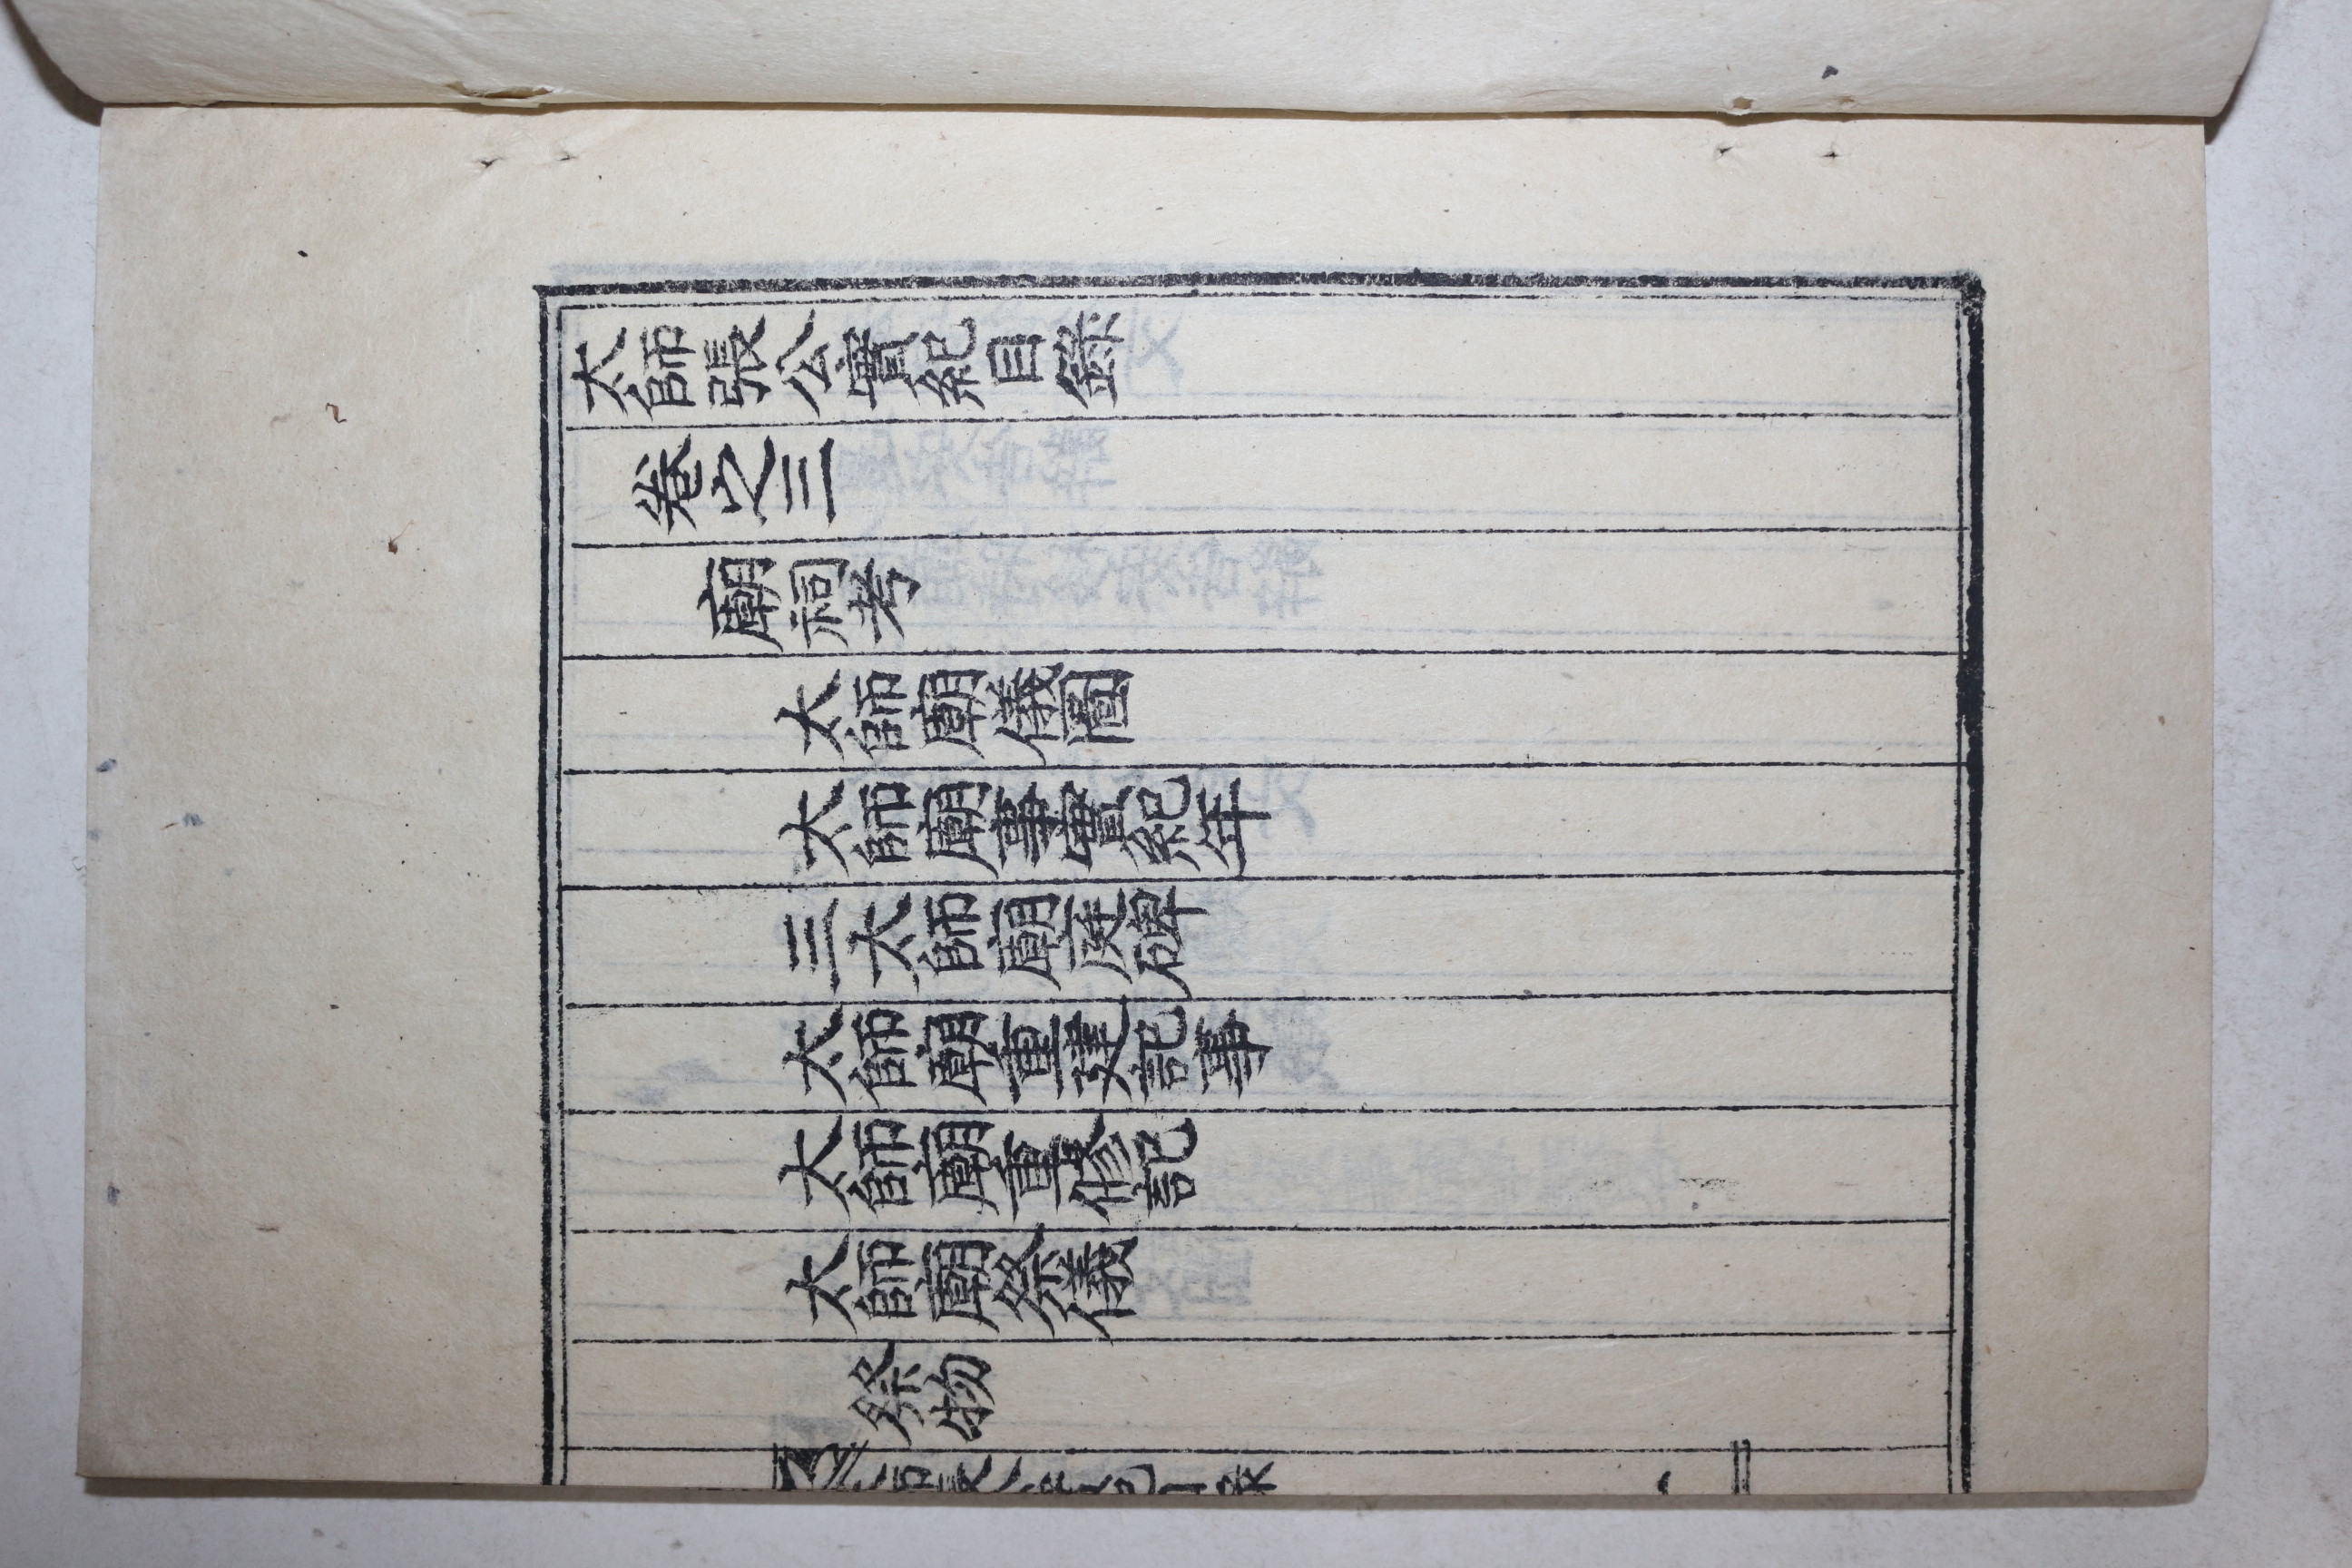 太師張公實紀目錄
卷之三
廟祠考
太師廟儀圖
太師廟事實紀年
三太師廟庭碑
太師廟重建記事
太師廟重修記
太師廟祭儀
祭物